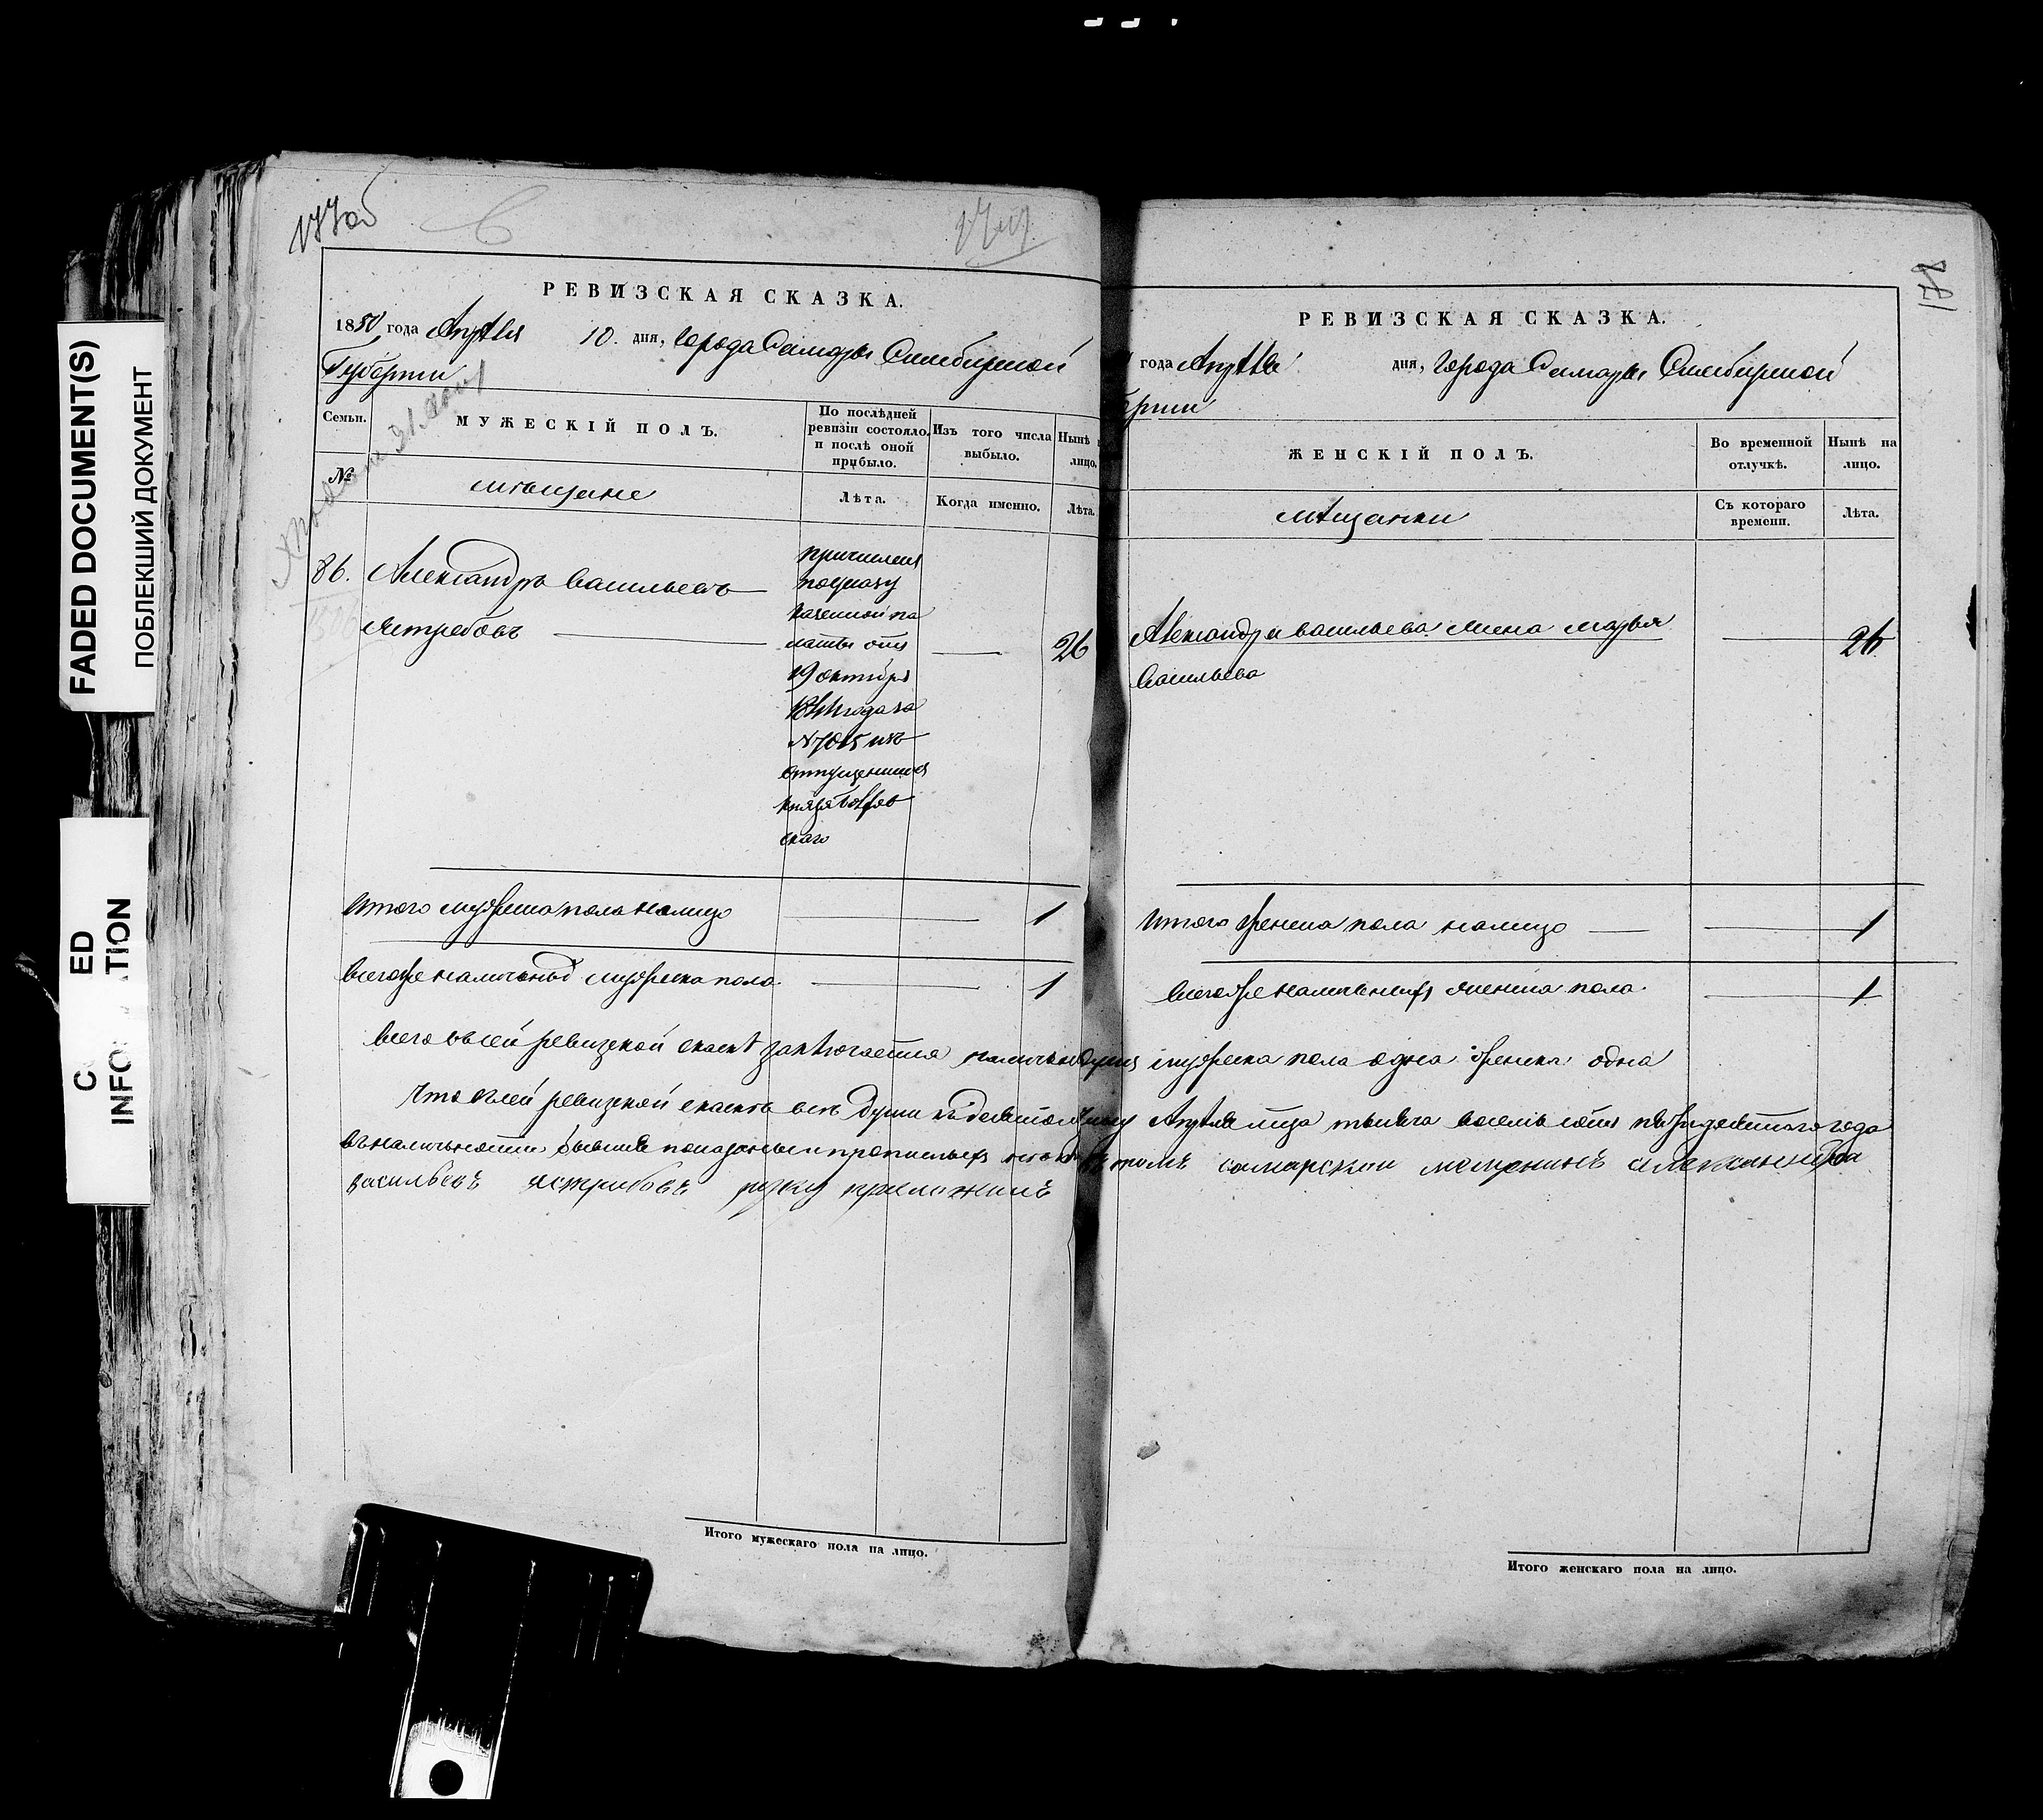 177 об
178
РЕВИЗСКАЯ СКАЗКА.
1850 года Апрѣля 10. дня, города Самары Симбирской
Губернии
Семьи.
МУЖЕСКІЙ ПОЛЪ.
По послѣдней ревизіи состояло, и послѣ оной прибыло.
Изъ того числа выбыло.
Нынѣ
лицо.
№
мѣщане
Лѣта.
Когда именно.
Лѣта.
86. Александръ Васильевъ
Ястребовъ
причислен
по указу
казенной па
латы отъ
19 октября
года за
N 7015 изъ
отпущенных
князя
скаго
26
Итого мужеска пола налицо 1
Всего же наличныхъ мужеска пола 1
РЕВИЗСКАЯ СКАЗКА.
года Апрѣля дня, города Самары Симбирской
ернии
ЖЕНСКІЙ ПОЛЪ.
Во временной отлучкѣ.
Нынѣ на лицо.
мѣщанки
Съ котораго времени.
Лѣта.
Александра Васильева жена Марья 26
Васильева
Итого женска пола налицо 1
Всего же наличныхъ женска пола 1
Всего в сей ревизской сказкѣ заключается наличных душ мужеска пола одна женска одна
Что в сей ревизской сказкѣ всѣ души къ десятому числу Апрѣля м̃ца тысяча восемь сотъ пятьдесятого года
въ наличности бывшие показаны и прописных нетъ в томъ самарскои мещенинъ александра
васильевъ ястрибовъ руку приложилъ
Итого мужескаго пола на лицо.
Итого женскаго пола на лицо.
FADED DOCUMENT(S)
ПОБЛЕКШИЙ ДОКУМЕНТ
C ED
INFO TION